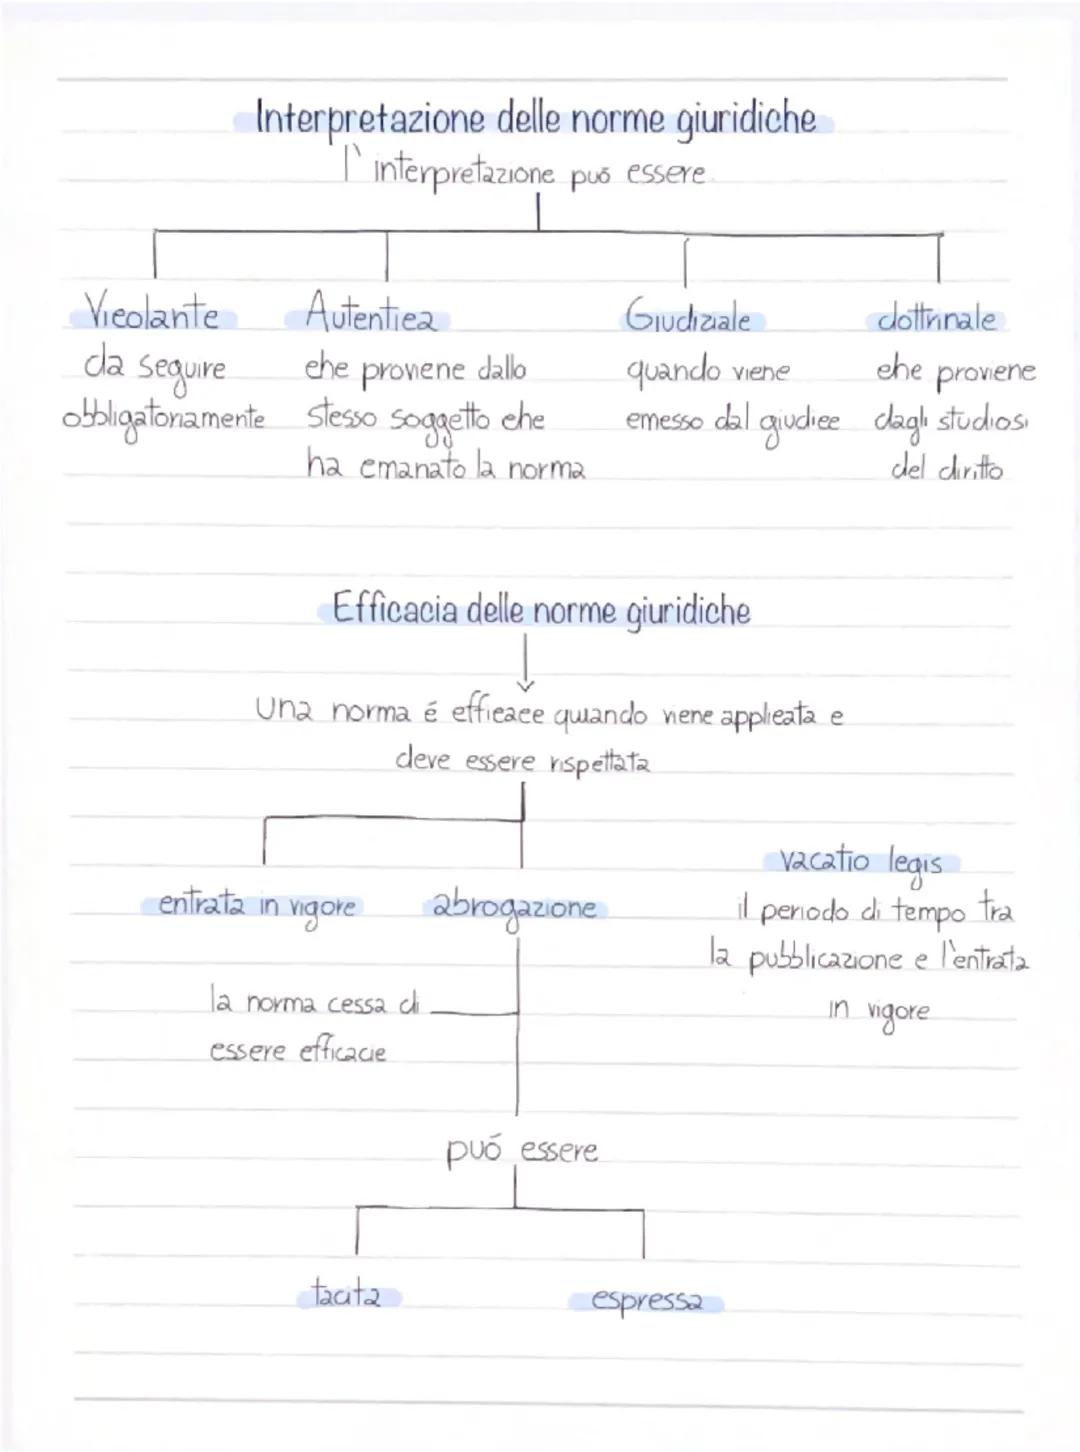 Interpretazione delle norme giuridiche
l'interpretazione può essere
Vicolante
da seguire
obbligatoriamente
Autentica
che proviene dallo
stesso soggetto che
ha emanato la norma
Giudiziale
quando viene
emesso dal giudice
dottrinale
che proviene
dagli studiosi
del diritto
Efficacia delle norme giuridiche
Una norma é efficace quando viene applicata e
deve essere rispettata
entrata in vigore
abrogazione
vacatio legis
il periodo di tempo tra
la pubblicazione e l'entrata
in vigore
la norma cessa di
essere efficacie
puó essere
tacita
espressa